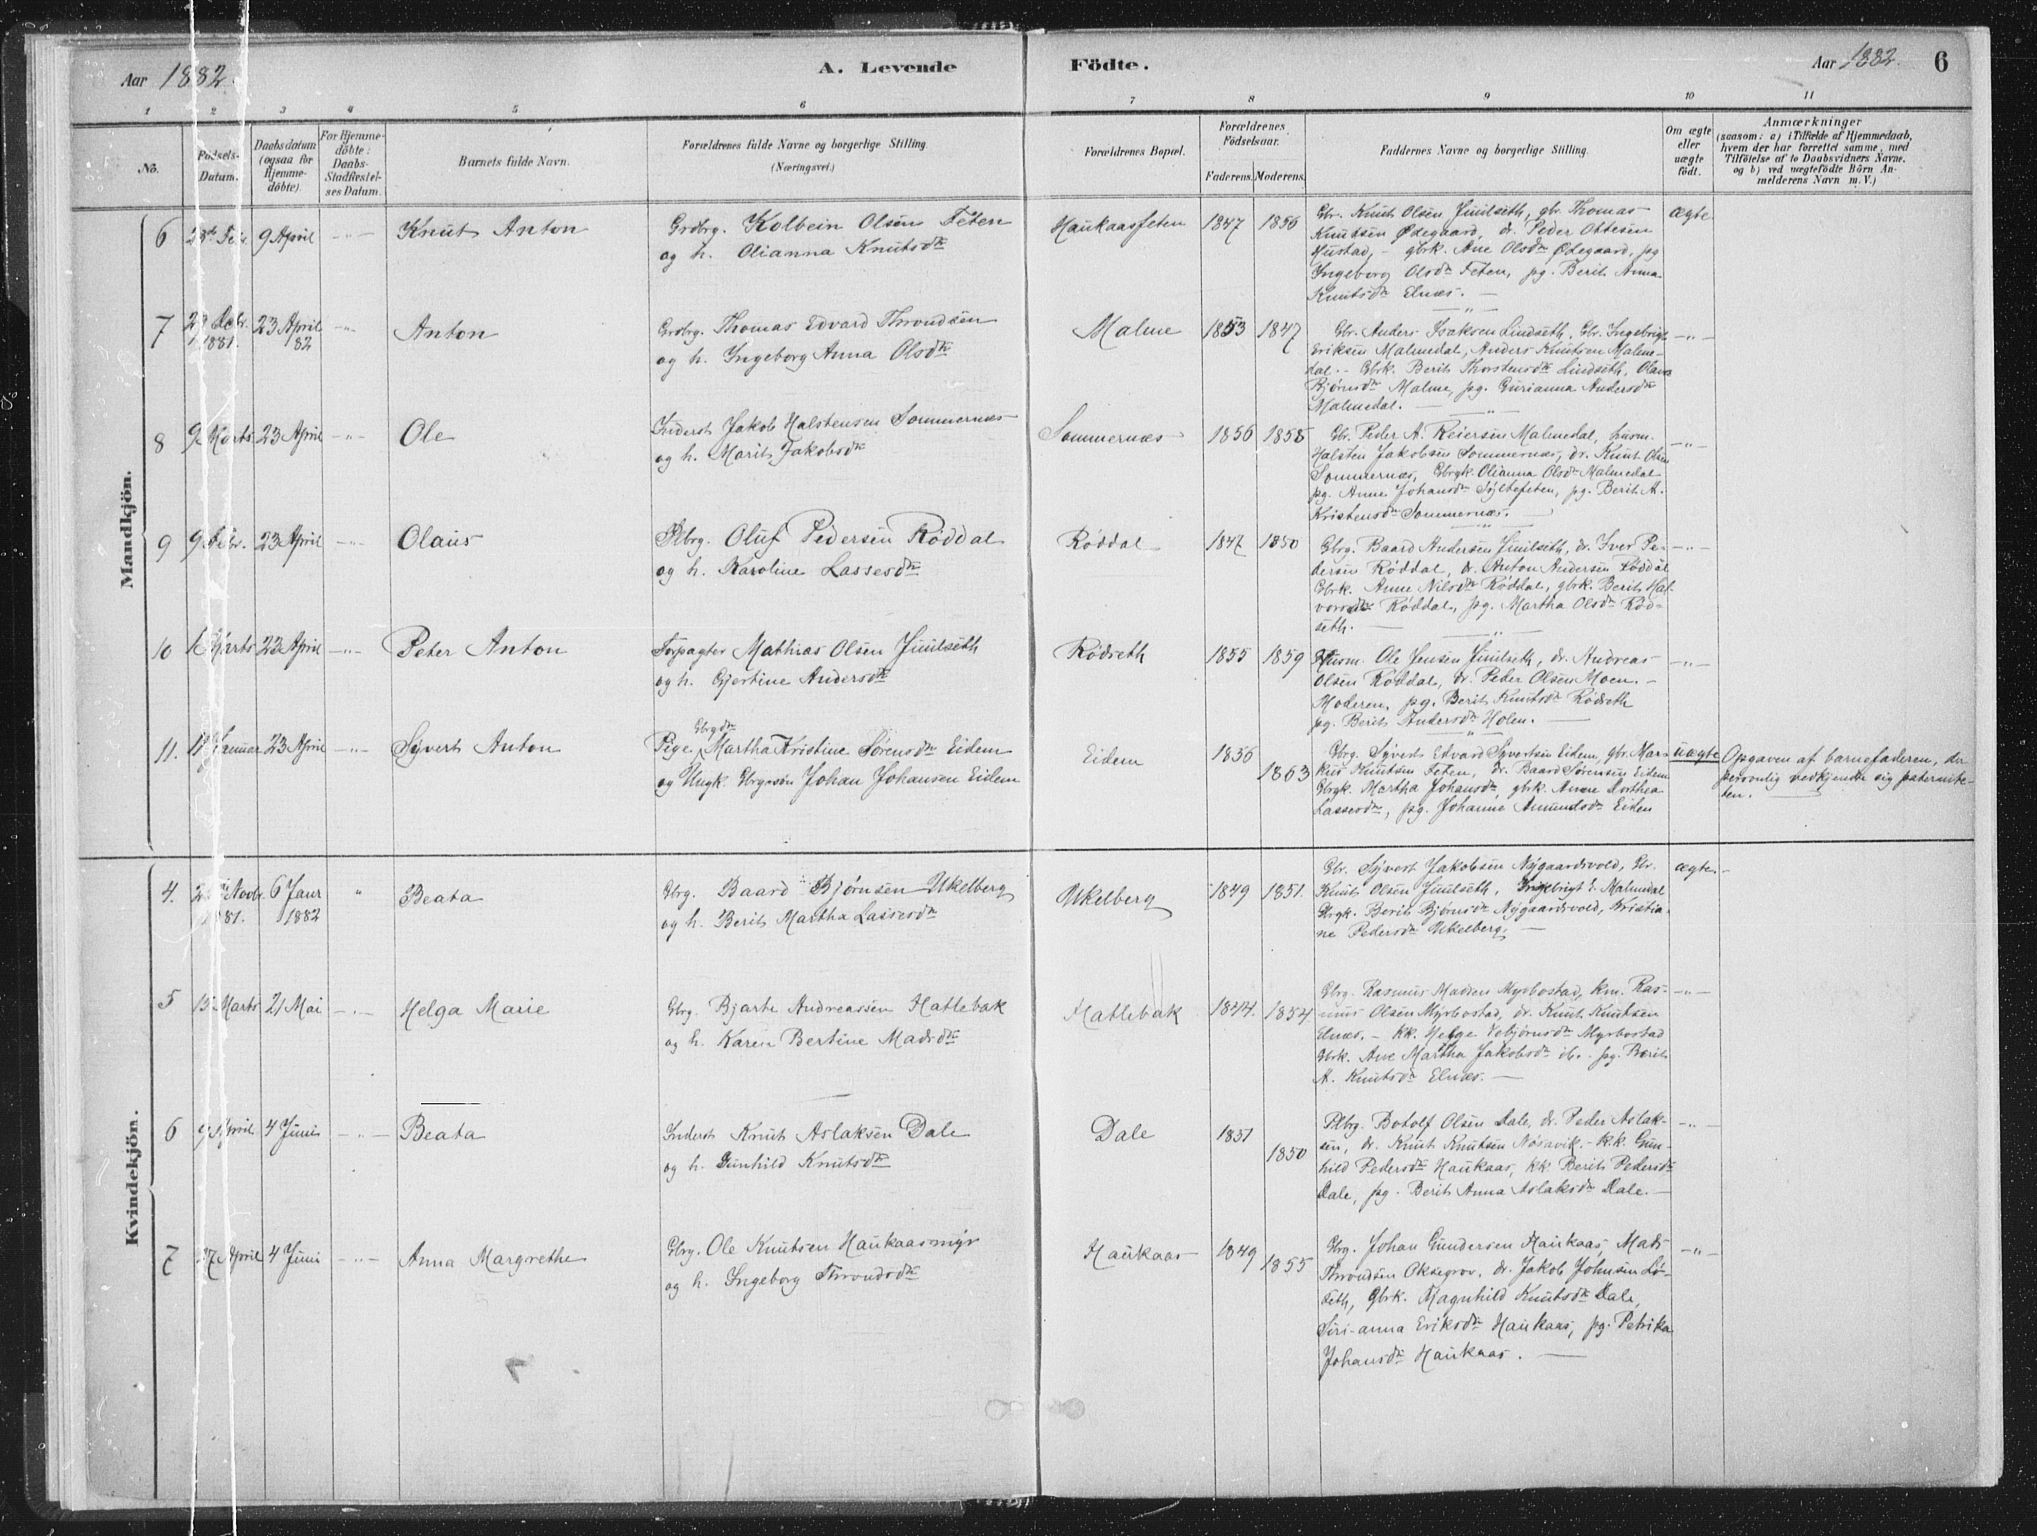 Aar 1882.
A. Levende
Födte.
Aar 1882.
6
1 2 3 4 5 6 7 8 9 10 11
No.
Födsels-
Datum.
Daabsdatum
(ogsaa for
Hjemme-
döbte).
For Hjemme-
döbte:
Daabs-
Stadfæstel-
ses Datum.
Barnets fulde Navn.
Forældrenes fulde Navne og borgerlige Stilling
(Næringsvei.)
Forældrenes Bopæl.
Forældrenes
Födselsaar.
Faderens. Moderens.
Faddernes Navne og borgerlige Stilling.
Om ægte
eller
uægte
födt.
Anmærkninger
(saasom: a) i Tilfælde af Hjemmedaab,
hvem der har forrettet samme, med
Tilföielse af to Daabsvidners Navne.
og b) ved uægtefödte Börn An-
melderens Navn m. V.)
Mandkjön.
6 Febr. 9 April -"- Knut Anton
Grdbrg. Kolbein Olsen Feten
og h. Olianna Knutsdtr
Haukaasfeten 1847 1856
Gbr. Knut Olsen Juulseth, gbr. Thomas
Knutsen Ødegaard, dr. Peder Ottesen
Hustad, - gbrk. Ane Olsdtr Ødegaard, pg
Ingeborg Olsdtr Feten, pg. Berit Anna
Knutsdtr Elnæs. -
ægte
7 Febr. 1881. 23 April 82 -"- Anton
Grdbrg. Thomas Edvard Throndsen
og h. Ingeborg Anna Olsdtr
Malme 1853 1847
Gbr. Anders Isaksen Lindseth, Gbr. Ingebrigt
Eriksen Malmedal, Anders Knutsen Malme-
dal. - Gbrk. Berit Thorstensdtr Lindseth, Olava
Bjørnsdtr Malme, pg. Gurianna Andersdtr
Malmedal. -
-"-
8 9 Marts 23 April -"- Ole
Inderst Jakob Halstensen Sommernæs
og h. Marit Jakobsdtr
Sommernæs 1856 1858
Gbr. Peder A. Reiersen Malmedal, husm.
Halsten Jakobsen Sommernæs, dr. Knut Olsen
Sommernæs, Gbrgk. Olianna Olsdtr Malmedal
pg. Anne Johansdtr Syltefeten, pg. Berit A.
Kristensdtr Sommernæs. -
-"-
9 9 Febr. 23 April -"- Olaus
Plbrg. Oluf Pedersen Røddal
og h. Karoline Lassesdtr
Røddal 1847 1850
Gbrg. Baard Andersen Juulseth, dr. Iver Pe-
dersen Røddal, dr. Anton Andersen Røddal
Gbrk. Anne Nilsdtr Røddal, gbrk. Berit Hal-
vorsdtr Røddal, pg. Martha Olsdtr Rød-
seth. -
-"-
10 Marts 23 April -"- Peter Anton
Forpagter Mathias Olsen Juulseth
og h. Gjertine Andersdtr
Rødseth 1855 1859
Husm. Ole Jensen Juulseth, dr. Andreas
Olsen Røddal, dr. Peder Olsen Moen. -
Moderen, pg. Berit Knutsdtr Rødseth
pg. Berit Andersdtr Holen. -
-"-
11. Januar 23 April -"- Syvert Anton
Gbrgdtr
Pige, Martha Kristine Sørensdtr Eidem
og Ungk. Gbrgssøn Johan Johansen Eidem
Eidem 1856 1863
Gbrg. Syvert Edvard Syvertsen Eidem, gbr. Mar-
kus Knutsen Feten, dr. Baard Sørensen Eidem
Gbrgk. Martha Johansdtr, gbrk. Anne Dorthea
Lassesdtr, pg. Johanne Amundsdtr Eidem
uægte
Opgaven af barnefaderen, der
personlig vedkjendte sig paternite-
ten. -
Kvindekjön.
4. Novbr 1881. 6 Janr 1882 " Beata
Gbrg. Baard Bjørnsen Ukelberg
og h. Berit Martha Lassesdtr
Ukelberg 1849 1851.
Gbr. Syvert Jakobsen Nygaardsvold, Gbr.
Knut Olsen Juulseth, Ingebrigt E. Malmedal
Gbrgk. Berit Bjørnsdtr Nygaardsvold, Kristia-
ne Pedersdtr Ukelberg. -
ægte.
5 15 Marts 21 Mai -"- Helga Marie
Gbrg. Bjarte Andreassen Hatlebak
og h. Karen Bertine Madsdtr
Hatlebak 1844. 1854
Gbrg. Rasmus Madsen Myrbostad, km. Ras-
mus Olsen Myrbostad, dr. Knut Knutsen
Elnæs. - kk. Helge Esbjørnsdtr Myrbostad
Gbrk. Ane Martha Jakobsdtr ib. pg. Berit
A. Knutsdtr Elnæs. -
-"-
6 9 April 4 Juni -"- Beata
Inderst Knut Aslaksen Dale
og h. Gunhild Knutsdtr
Dale 1851 1850
Plbrg. Botolf Olsen Dale, dr. Peder Aslak-
sen, dr. Knut Knutsen Nøsavik. - kk. Gun-
hild Pedersdtr Haukaas, kk Berit Pedersdtr
Dale, pg. Berit Anna Aslaksdtr Dale. -
-"-
7 27 April 4 Juni -"- Anna Margrethe
Gbrg. Ole Knutsen Haukaasmyr
og h. Ingeborg Throndsdtr
Haukaas 1849 1855
Gbrg. Johan Gundersen Haukaas, Mads
Throndsen Oksegrov, dr. Jakob Johnsen Lø-
seth, Gbrk. Magnhild Knutsdtr Dale,
Siri-anna Eriksdtr Haukaas, pg. Petrika
Johansdtr Haukaas. -
-"-